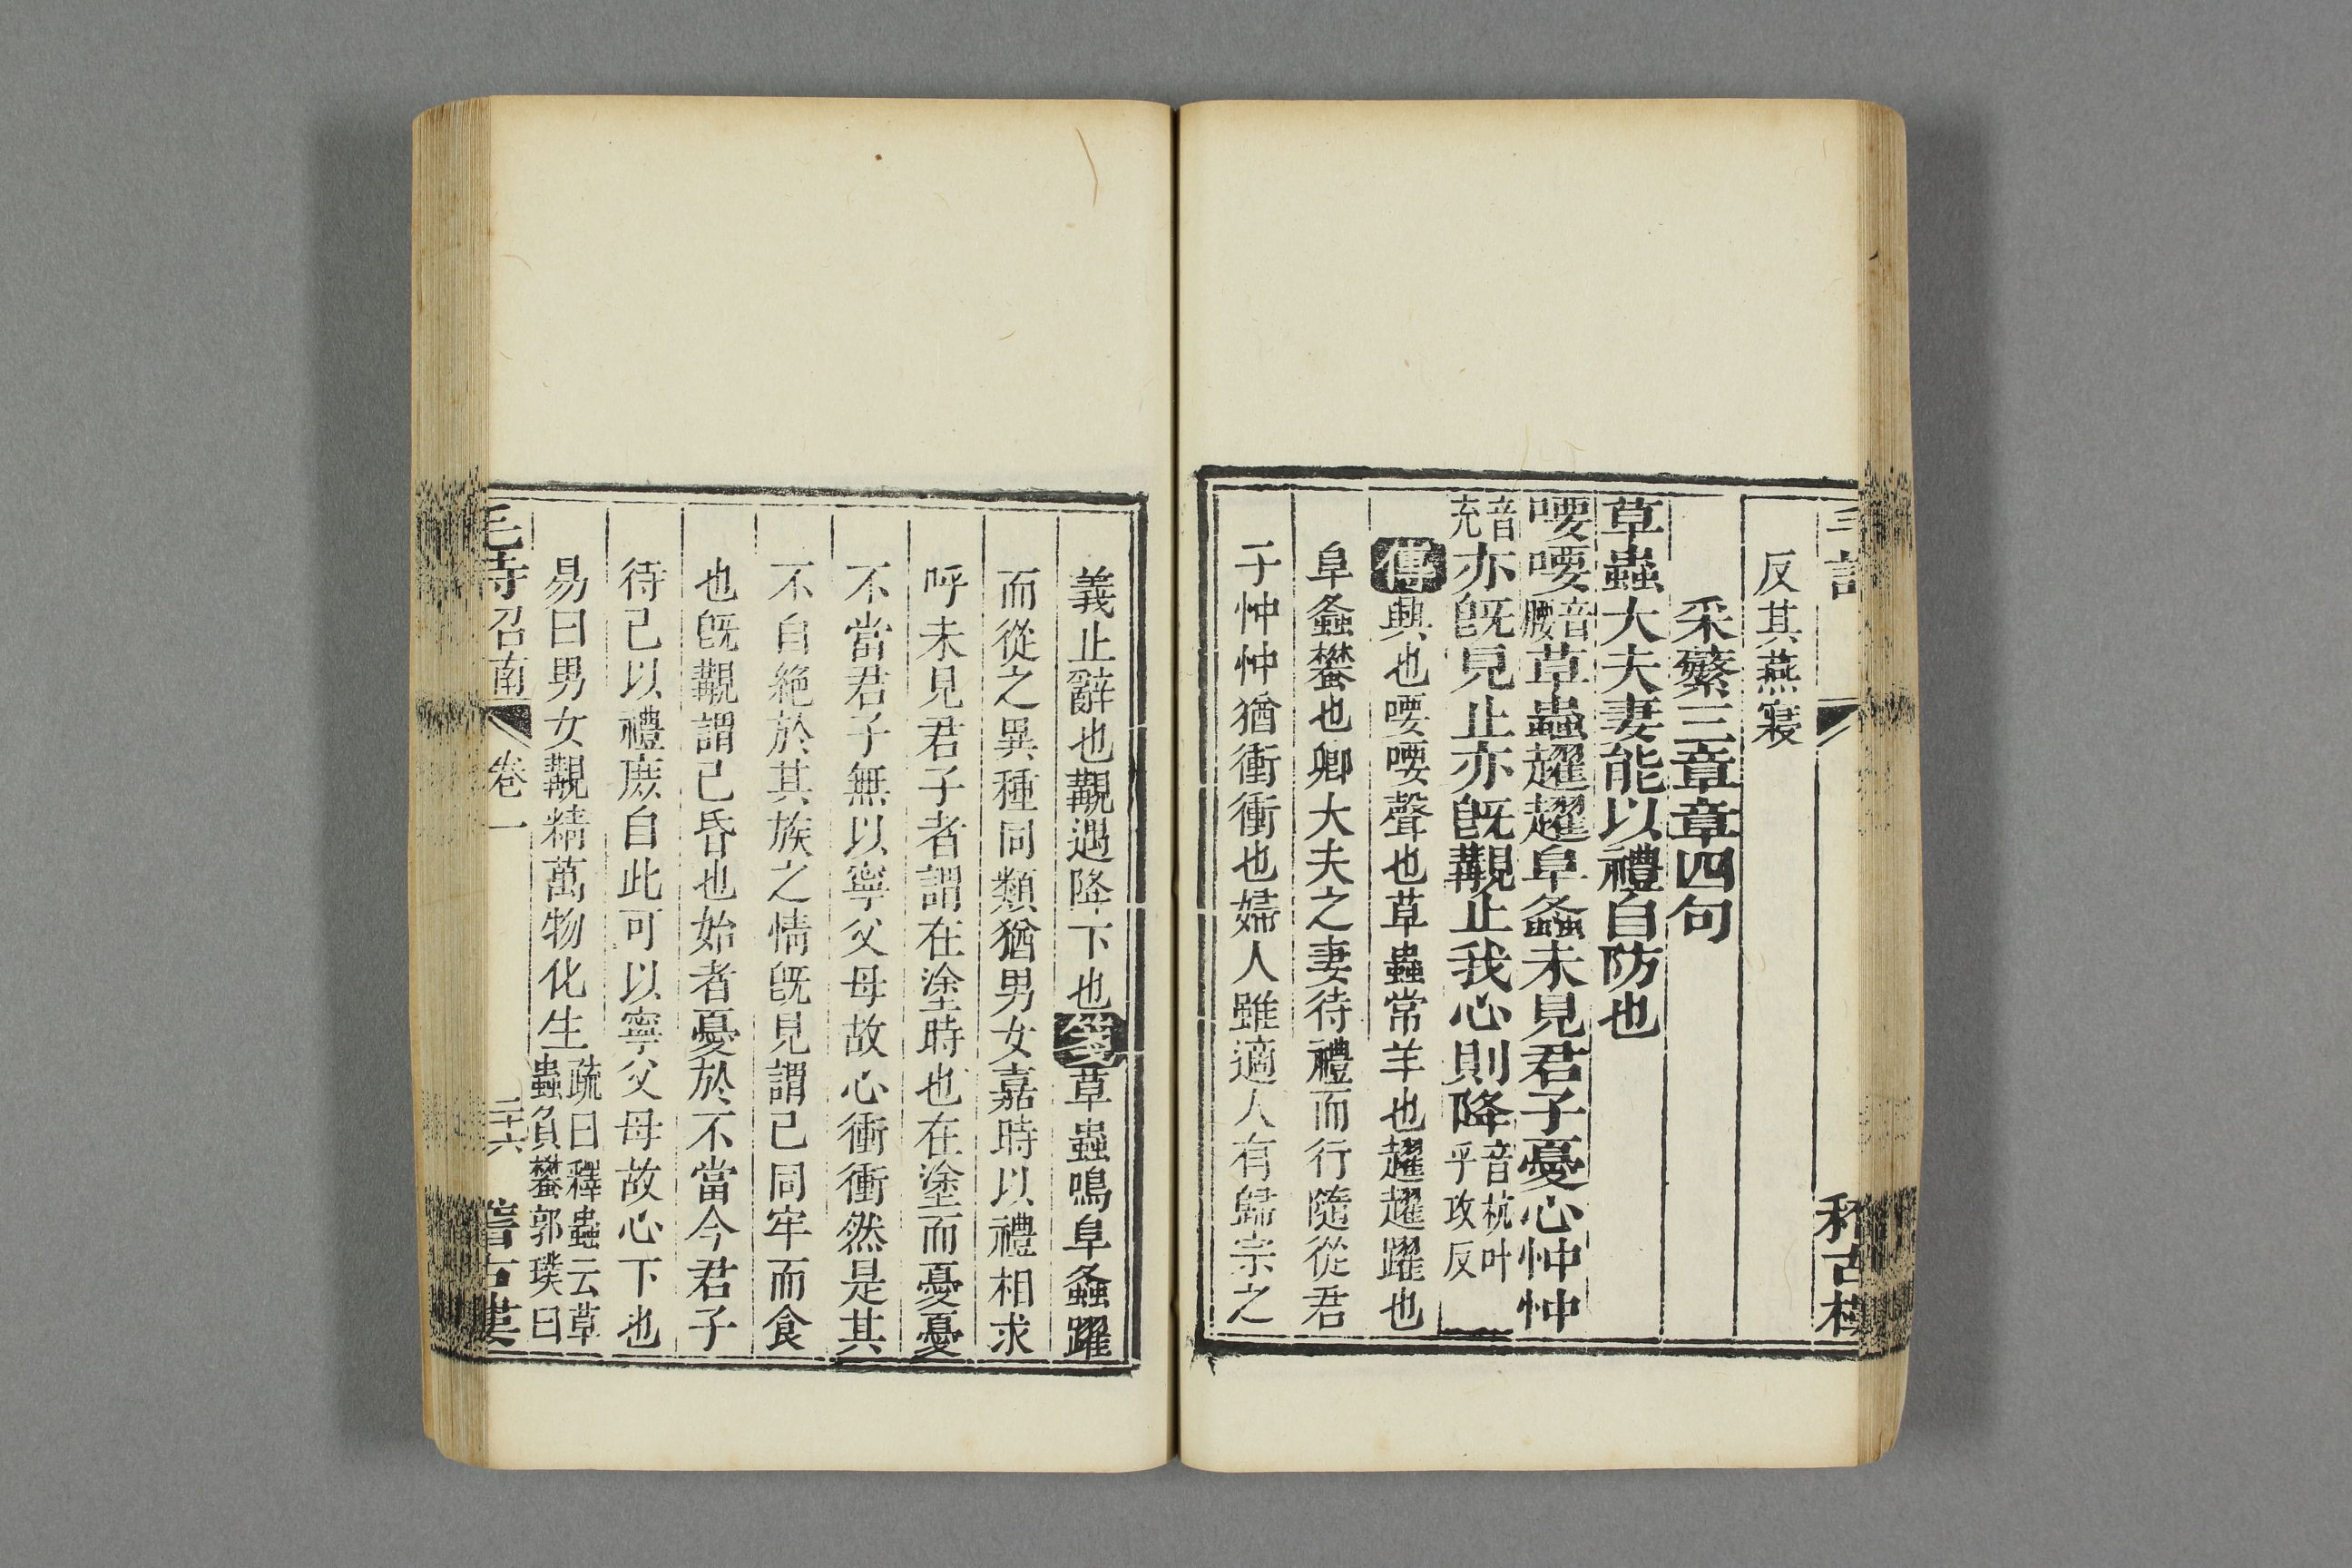 反其燕寢
采蘩三章章四句
草蟲大夫妻能以禮自防也
喓喓音腰草蟲趯趯阜螽未見君子憂心忡忡
音充亦旣見止亦旣覯止我心則降音杭叶乎攻反
傳興也喓喓聲也草蟲常羊也趯趯躍也
阜螽蠜也卿大夫之妻待禮而行隨從君
子忡忡猶衝衝也婦人雖適人有歸宗之
義止辭也覯遇降下也箋草蟲鳴阜螽躍
而從之異種同類猶男女嘉時以禮相求
呼未見君子者謂在塗時也在塗而憂憂
不當君子無以寧父母故心衝衝然是其
不自絶於其族之情旣見謂已同牢而食
也旣覯謂已昏也始者憂於不當今君子
待己以禮庶自此可以寧父母故心下也
易曰男女覯精萬物化生疏曰釋蟲云草
蟲負蠜郭璞曰
毛詩召南 卷一 二十六